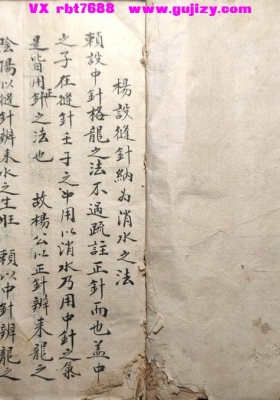 VX rbt7688 www.gujizy.com
楊設縫針納為消水之法
賴設中針格龍之法不過疏註正針而也蓋中
之子在縫針壬子之中用以消水乃用中針之氣
是皆用針之法也 故楊公以正針辨來龍之
陰陽以縫針辨来水之生旺 賴以中針辨龍之